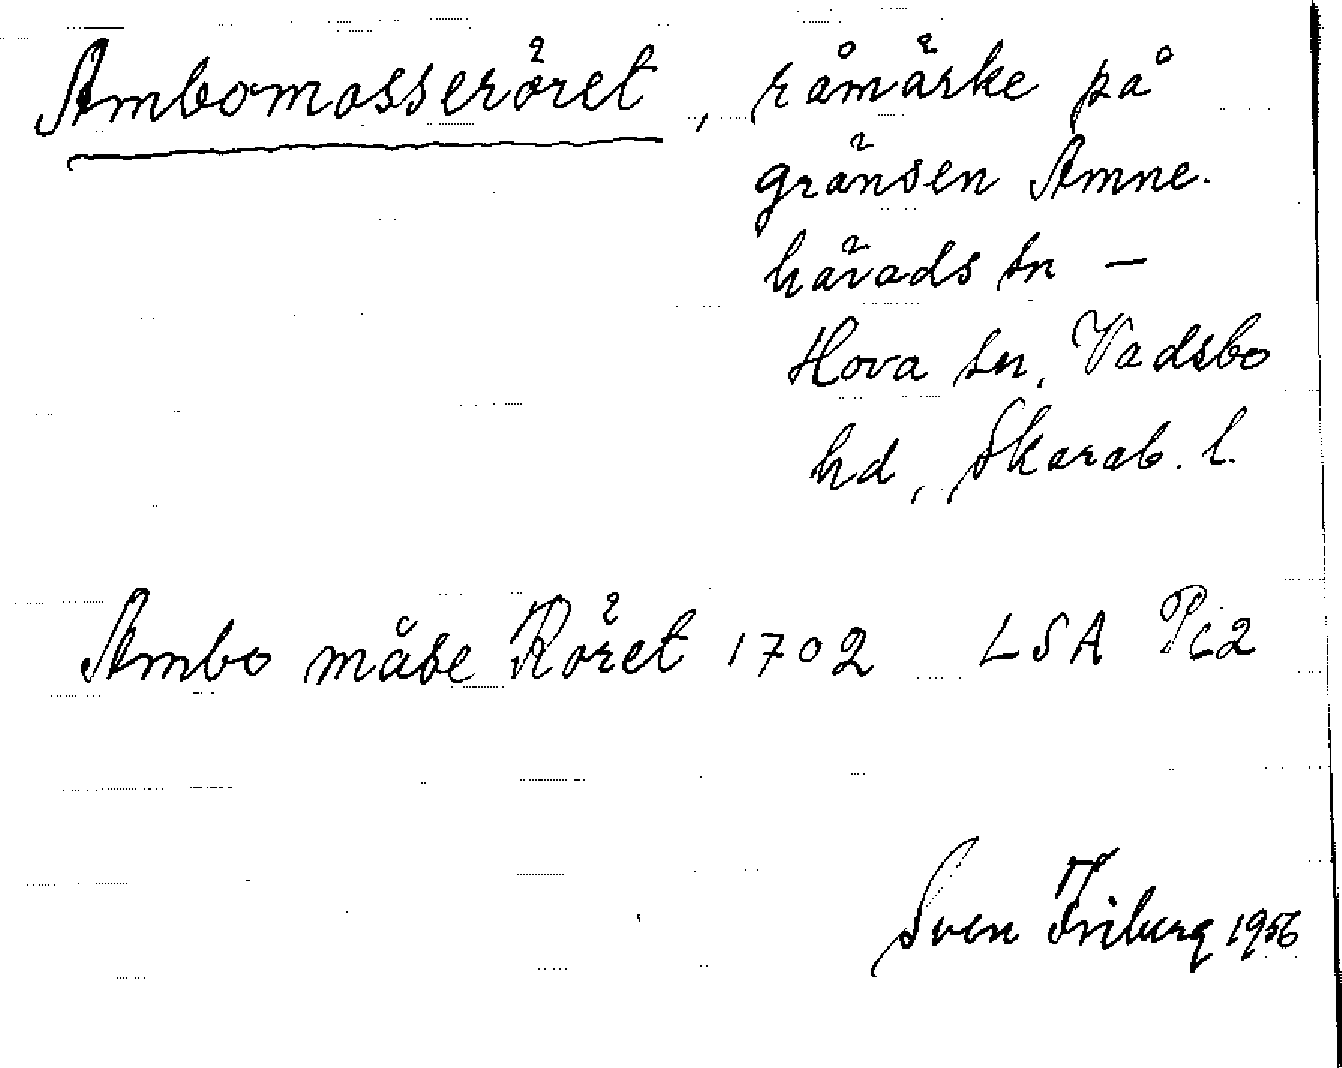 Ambomosseröret, råmärke på
gränsen Amne-
härads sn —
Hova sn, Vadsbo
hd, Skarab. l.
Ambo måse Röret 1702 LSA Pc2
Sven Friberg 1956